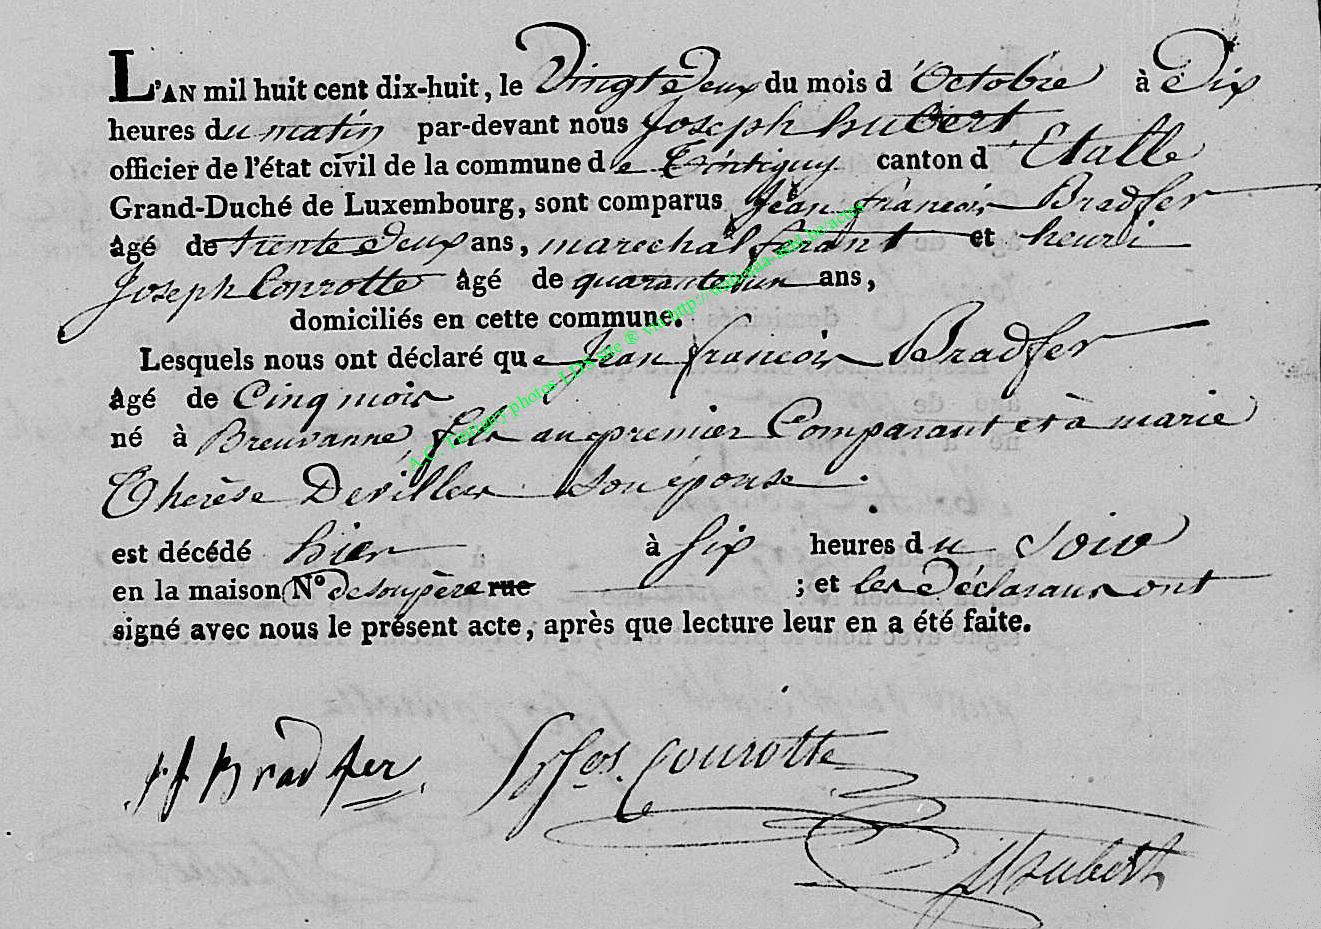 L'AN mil huit cent dix-huit, le Vingt Deux du mois d'Octobre à Dix
heures du matin par-devant nous Joseph hubert
officier de l'état civil de la commune de Tintigny canton d'Etalle
Grand-Duché de Luxembourg, sont comparus Jean françois Bradfer
âgé de trente Deux ans, marechal ferant et henri
Joseph Conrotte âgé de quarante un ans,
domiciliés en cette commune.
Lesquels nous ont déclaré que Jean françois Bradfer
âgé de Cinq mois
né à Breuvanne, fils au premier Comparant et à marie
Therèse Deviller son épouse.
est décédé hier à six heures du soir
en la maison N° de son père rue ; et les Déclarans ont
signé avec nous le présent acte, après que lecture leur en a été faite.
jf Bradfer Jos. Conrotte
Hubert